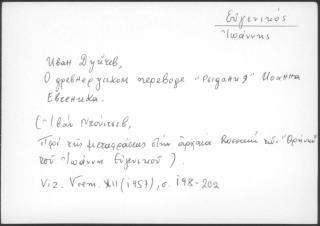 Εὐγενικός
Ἰωάννης
Иван Дуйчев,
О древнерусском переводе "Рыдания" Иоанна
Евгеника.
(Ἰβὰν Ντούιτσεβ,
Περὶ τῆς μεταφράσεως στὴν ἀρχαία Ρωσικὴ τοῦ "Θρήνου"
τοῦ Ἰωάννη Εὐγενικοῦ).
Viz. Vrem. XII (1957), σ. 198-202